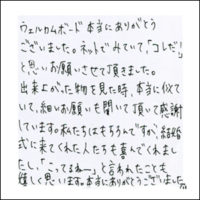 ウェルカムボード本当にありがとう
ございました。ネットでみていて「コレだ!」
と思いお願いさせて頂きました。
出来上がった物を見た時、本当に似て
いて、細いお願いも聞いて頂いて感謝
しています。私たちはもちろんですが、結婚
式に来てくれた人たちも喜んでくれまし
たし、「こってるねー」と言われたことも
嬉しく思います。本当にありがとうございました